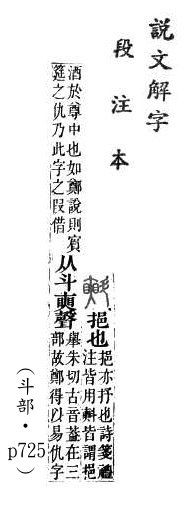 說文解字
段注本
挹也挹亦抒也詩箋禮
注皆用㪺皆謂挹
酒於尊中也如鄭說則賓
筵之仇乃此字之叚借
从斗𡙇聲舉朱切古音葢在三
部故鄭得以易仇字
（斗部・p725）